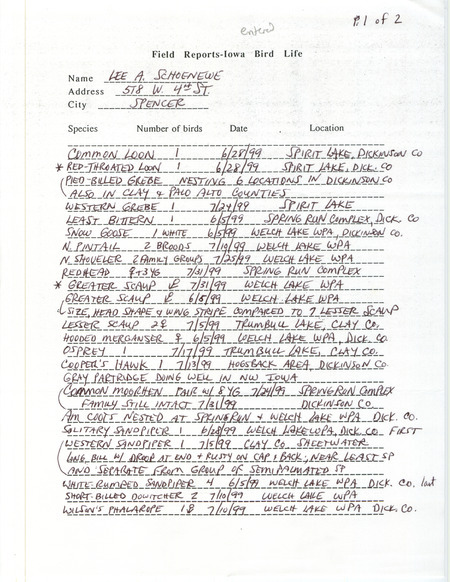 P.1 of 2
entered
Field Reports-Iowa Bird Life
Name LEE A. SCHOENEWE
Address 518 W. 4th ST.
City SPENCER
Species Number of birds Date Location
COMMON LOON 1 6/28/99 SPIRIT LAKE, DICKINSON CO
* RED-THROATED LOON 1 6/28/99 SPIRIT LAKE, DICK. CO
PIED-BILLED GREBE NESTING 6 LOCATIONS IN DICKINSON CO
ALSO IN CLAY & PALO ALTO COUNTIES
WESTERN GREBE 1 7/24/99 SPIRIT LAKE
LEAST BITTERN 1 6/5/99 SPRING RUN COMPLEX, DICK. CO
SNOW GOOSE 1 WHITE 6/5/99 WELCH LAKE WPA, DICKINSON CO.
N. PINTAIL 2 BROODS 7/19/99 WELCH LAKE WPA
N. SHOVELER 2 FAMILY GROUPS 7/25/99 WELCH LAKE WPA
REDHEAD ♀+3 YG 7/31/99 SPRING RUN COMPLEX
* GREATER SCAUP 1♂ 7/31/99 WELCH LAKE WPA
GREATER SCAUP 1♂ 6/5/99 WELCH LAKE WPA
SIZE, HEAD SHAPE & WING STRIPE COMPARED TO 7 LESSER SCAUP
LESSER SCAUP 2♀ 7/5/99 TRUMBULL LAKE, CLAY CO.
HOODED MERGANSER ♀ 6/5/99 WELCH LAKE WPA, DICK. CO
OSPREY 1 7/17/99 TRUMBULL LAKE, CLAY CO.
COOPER'S HAWK 1 7/13/99 HOGSBACK AREA, DICKINSON CO
GRAY PARTRIDGE DOING WELL IN NW IOWA
COMMON MOORHEN PAIR W/ 8 YG 7/24/99 SPRING RUN COMPLEX
FAMILY STILL INTACT 7/31/99 DICKINSON CO.
AM COOTS NESTED AT SPRING RUN & WELCH LAKE WPA DICK. CO.
SOLITARY SANDPIPER 1 6/28/99 WELCH LAKE WPA, DICK. CO FIRST
WESTERN SANDPIPER 1 7/5/99 CLAY CO. SHEETWATER
LONG BILL W/ DROOP AT END & RUSTY ON CAP & BACK, NEAR LEAST SP
AND SEPARATE FROM GROUP OF SEMIPALMATED SP
WHITE-RUMPED SANDPIPER 4 6/5/99 WELCH LAKE WPA DICK. CO. last
SHORT-BILLED DOWITCHER 2 7/10/99 WELCH LAKE WPA
WILSON'S PHALAROPE 1♂ 7/10/99 WELCH LAKE WPA DICK. CO.